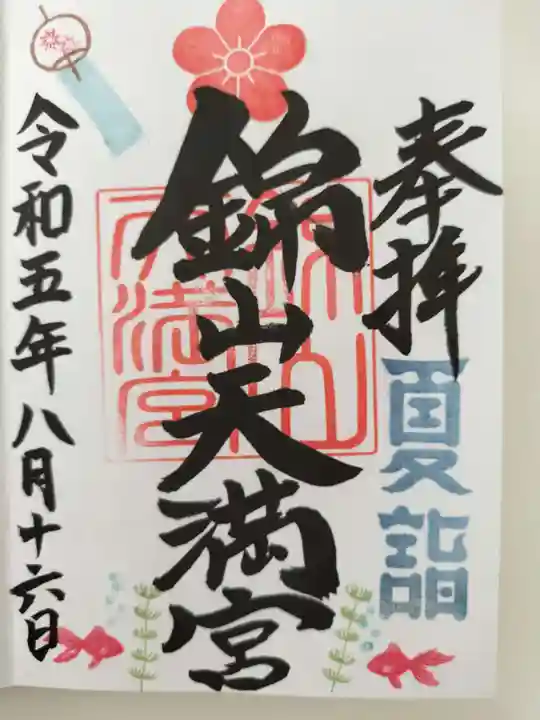 奉拝
夏詣
錦山天満宮
令和五年八月十六日